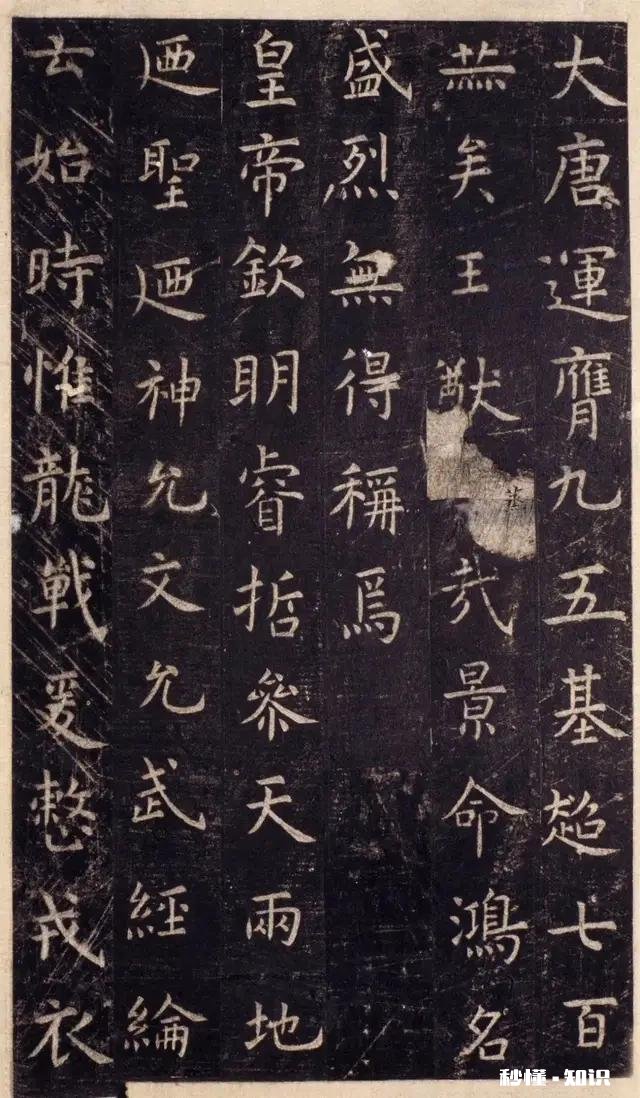 大唐運膺九五基超七百
燕矣王猷哉景命鴻名
盛烈無得稱焉
皇帝欽明睿哲參天兩地
迺聖迺神允文允武經綸
云始時惟龍戰爰整戎衣
秒懂·知识